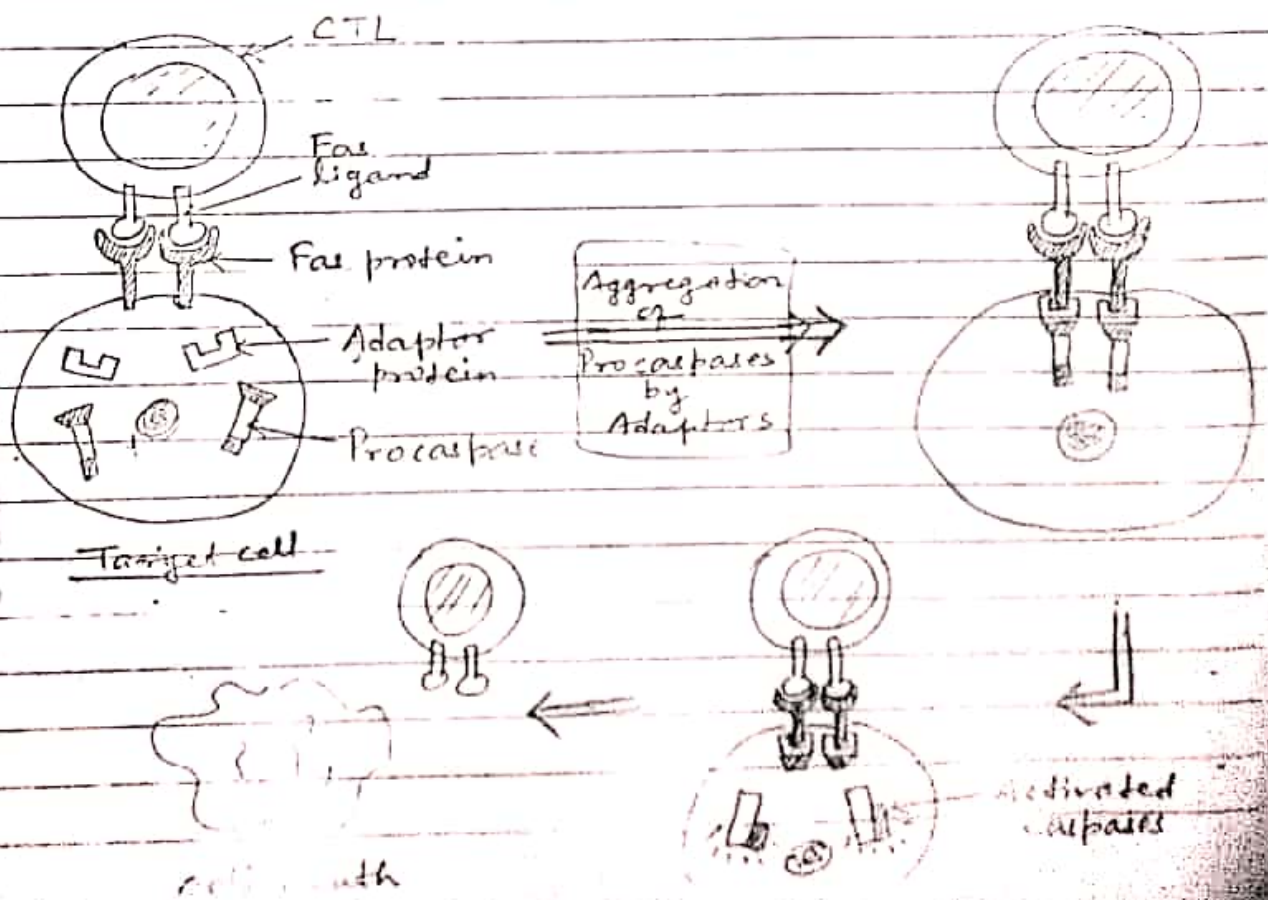 CTL
Fas
ligand
Fas protein
Adaptor
protein
Procaspase
Target cell
Aggregation
of
Procaspases
by
Adaptors
Activated
caspases